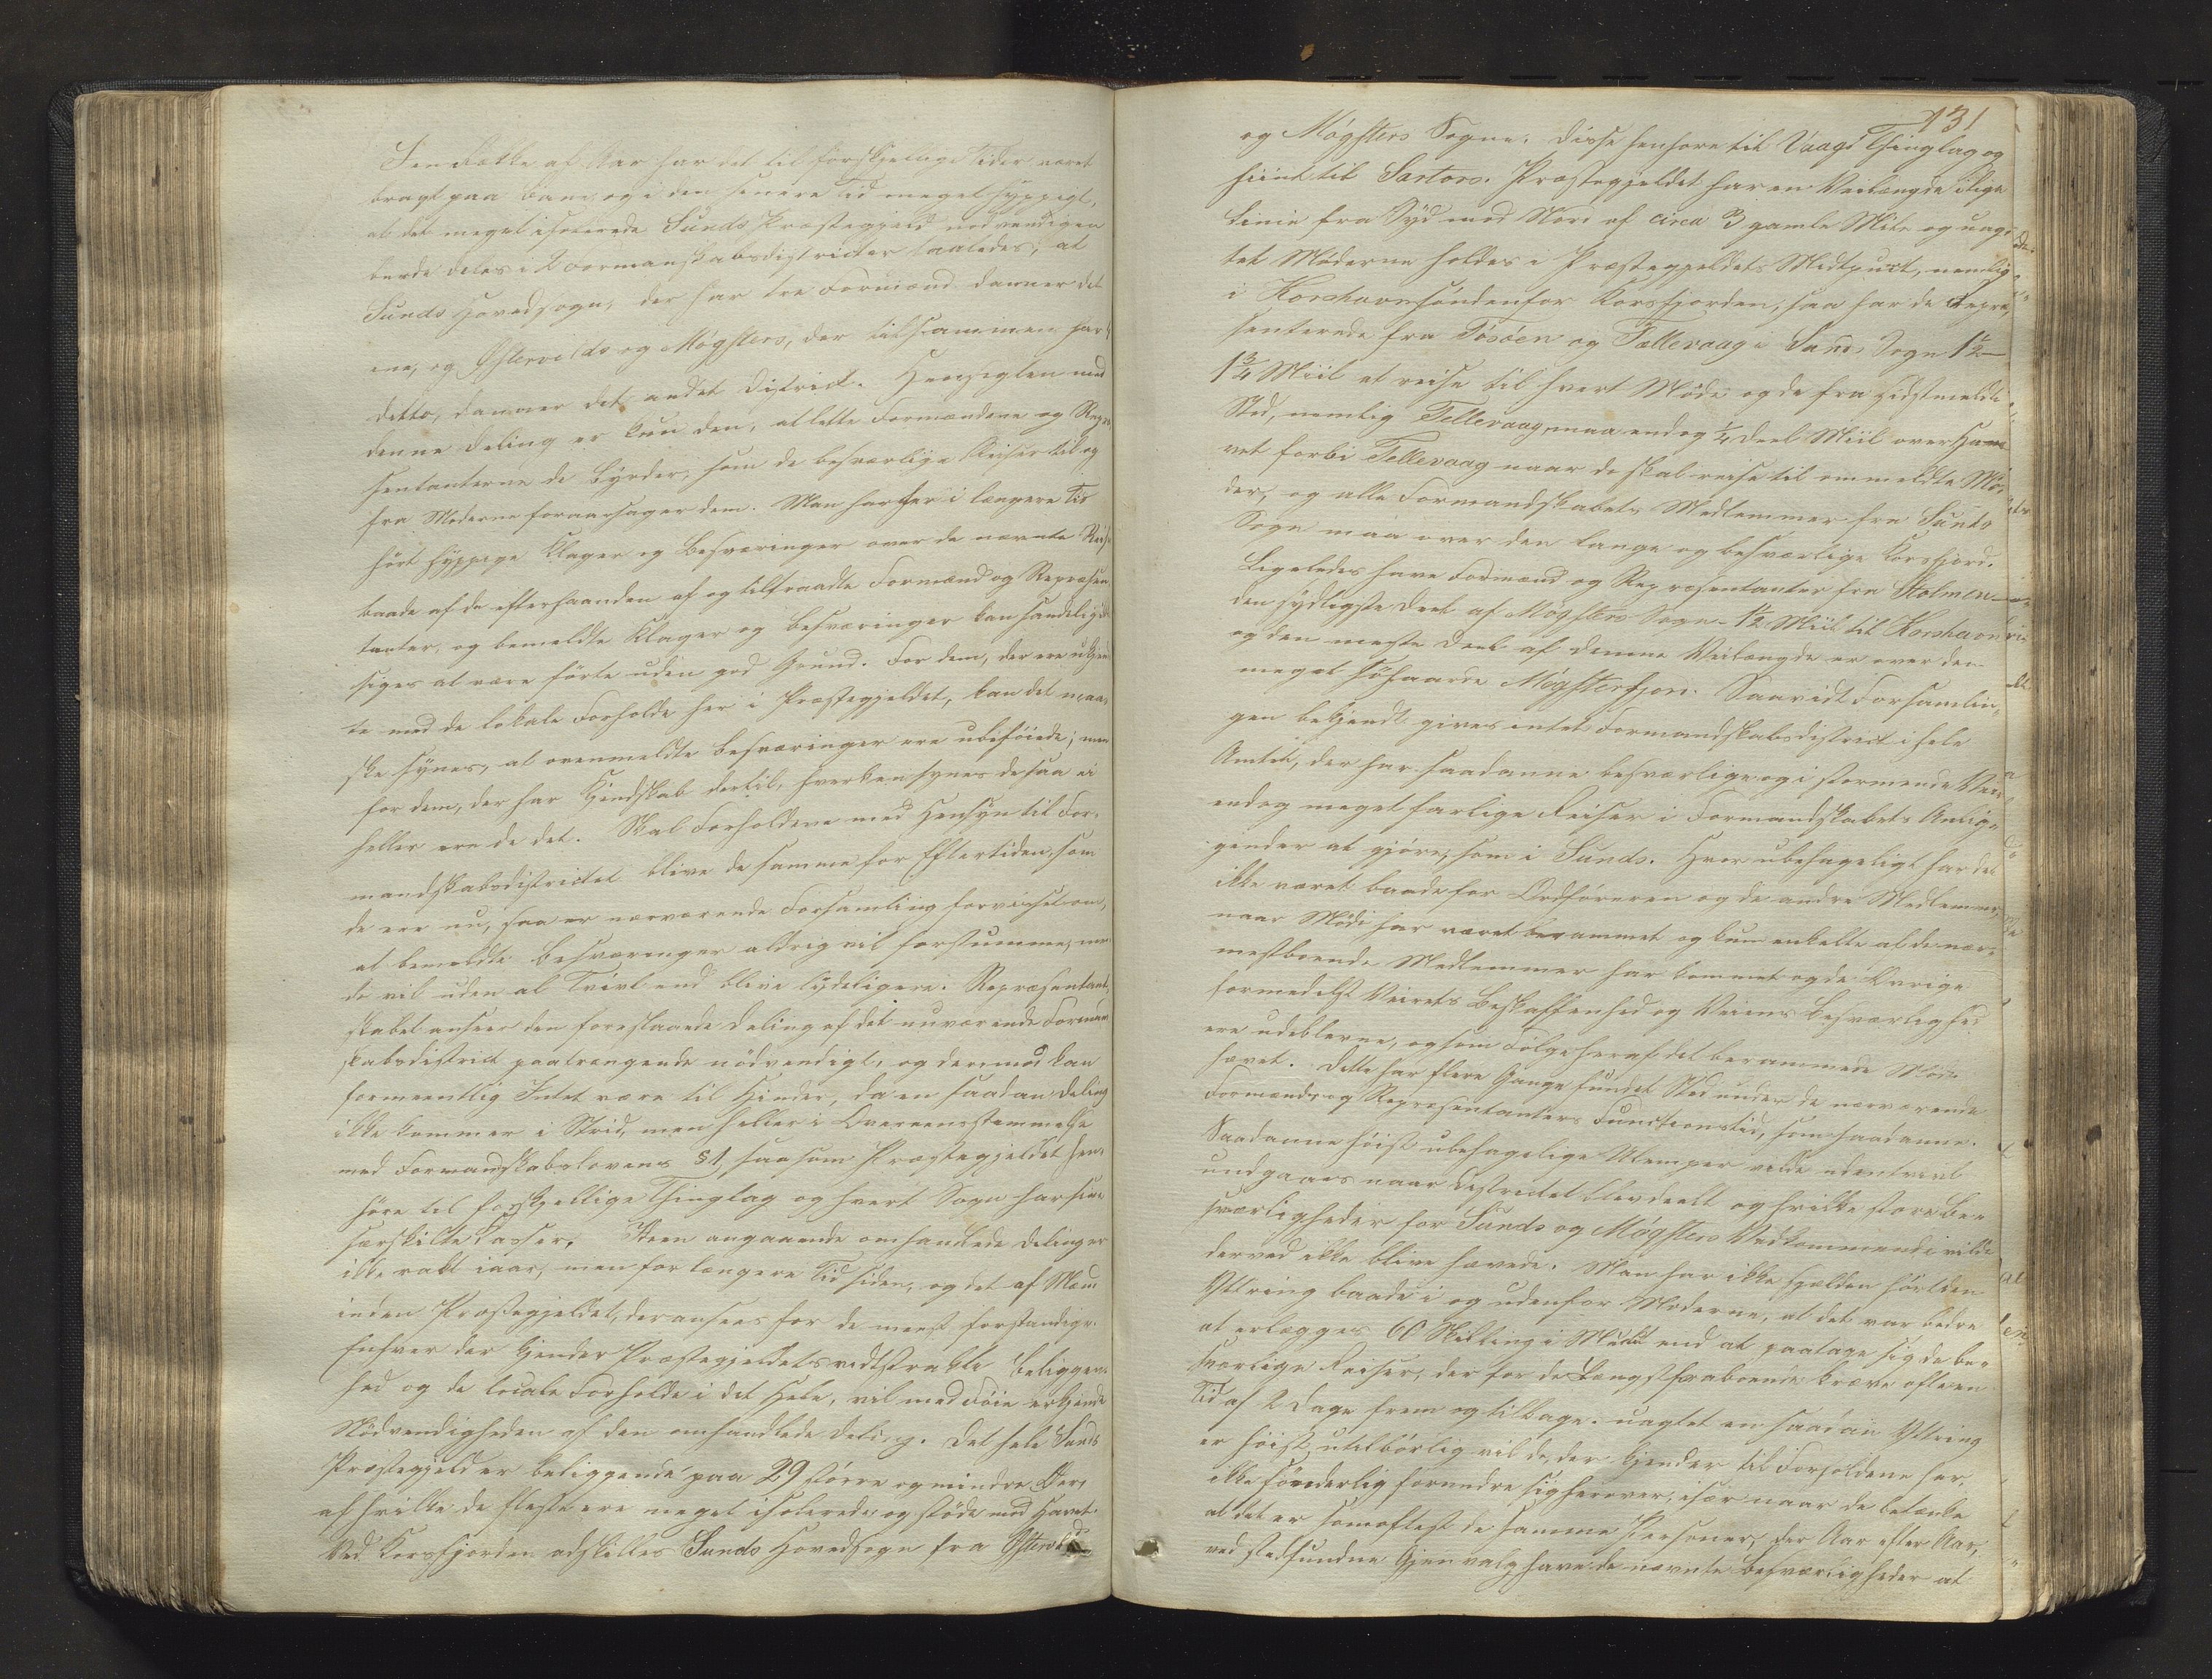 I en Række af Aar har det til forskjellige Tider været
bragt paa Bane, og i den senere Tid meget hyppigt,
at det meget isolerede Sunds Præstegjeld nødvendigen
burde deles i 2 Formanskabsdistricter saaledes, at
Sunds Hovedsogn, der har tre Formænd danner det
ene, og Østervolds og Møgsters, der tilsammen har
ditto, danner det andet District. Hensigten med
denne Deling er kun den, at lette Formændene og Repræ-
sentanterne de Byrder, som de besværlige Reiser til og
fra Møderne foraarsager dem. Man har her i længere Tid
hørt hyppige Klager og Besværinger over de nævnte Reiser
baade af de efterhaanden af og tiltraadte Formænd og Repræsen
tanter, og bemeldte Klager og Besværinger kan sandelig ikke
siges at være førte uden god Grund. For dem, der ere ukjend-
te med de lokale Forholde her i Præstegjeldet, kan det maa-
ske synes, at ovenmeldte Besværinger ere ubeføiede; men
for dem, der har Kjendskab dertil, hverken synes de saa ei
heller ere de det. Skal Forholdene med Hensyn til For-
mandskabsdistrictet blive de samme for Eftertiden, som
de ere nu, saa er nærværende Forsamling forvisset om,
at bemeldte Besværinger aldrig vil forstumme, men
de vil uden al Tvivl end blive lydeligere. Repræsentant-
skabet anseer den foreslaaede Deling af det nuværende Forman
skabsdistrict paatrængende nødvendigt, og derimod kan
formeentlig Intet være til Hinder, da en saadan Deling
ikke kommer i Strid, men heller i Overeensstemmelse
med Formandskabslovens § 1, saasom Præstegjeldet hen-
høre til forskjellige Thinglag og hvert Sogn har sine
særskilte Casser. Ideen angaaende omhandlede Deling er
ikke vakt iaar, men for længere Tid siden, og det af Mænd
inden Præstegjeldet, der ansees for de meest forstandige.
Enhver der kjender Præstegjeldets vidtstrakte Beliggen-
hed og de locale Forholde i det Hele, vil med Føie erkjende
Nødvendigheden af den omhandlede Deling. Det hele Sunds
Præstegjeld er beliggende paa 29 større og mindre Øer,
af hvilke de fleste ere meget isolerede og støde mod Havet.
Ved Korsfjorden adskilles Sunds Hovedsogn fra Østervolds
131
og Møgsters Sogne. Disse henhøre til Vaags Thinglag og
hiint til Sartors. Præstegjeldet har en Veilængde i lige
Linie fra Syd mod Nord af circa 3 gamle Mile og uag-
tet Møderne holdes i Præstegjeldets Midtpunkt, nemlig
i Korshavn søndenfor Korsfjorden, saa har de Repræ
senterede fra Tøsøen og Tællevaag i Sunds Sogn 1½ –
1¾ Miil at reise til hvert Møde og de fra sidstmeldte
Sted, nemlig Tellevaag, maa endog ¼ Deel Miil over Ha-
vet forbi Tellevaag naar de skal reise til ommeldte Mø-
der, og alle Formandskabets Medlemmer fra Sunds
Sogn maa over den lange og besværlige Korsfjord.
Ligeledes have Formænd og Repræsentanter fra Stolmen –
den sydligste Deel af Møgsters Sogn – 1½ Miil til Korshavn
og den meste Deel af denne Veilængde er over den
meget søhaarde Møgsterfjord. Saavidt Forsamlin-
gen bekjendt gives intet Formandskabsdistrict i hele
Amtet, der har saadanne besværlige og i stormende Veir
endog meget farlige Reiser i Formandskabets Anlig-
gender at gjøre, som i Sunds. Hvor ubehageligt har det
ikke været baade for Ordføreren og de andre Medlemmer,
naar Møde har været berammet og kun enkelte af de nær-
mestboende Medlemmer har kommet og de Øvrige
formedelst Veirets Beskaffenhed og Veiens Besværlighed
ere udeblevne, og som Følge heraf det berammede Møde
hævet. Dette har flere Gange fundet Sted under de nærværende
Formænds og Repræsentanters Functionstid, som saadanne.
Saadanne høist ubehagelige Ulemper vilde uden tvivl
undgaaes naar Districtet blev deelt og hvilke store Be-
sværligheder for Sunds og Møgsters Vedkommende vilde
derved ikke blive hævede. Man har ikke sjælden hørt den
Yttring baade i og udenfor Møderne, at det var bedre
at erlægges 60 Skilling i Mulkt end at paatage sig de be-
sværlige Reiser, der for de Længstfraboende kræve ofte en
Tid af 2 Dage frem og tilbage. uagtet en saadan Yttring
er høist utilbørlig vil de, der kjender til Forholdene her,
ikke sønderlig forundre sig herover, især naar de betænke
at det er somoftest de samme Personer, der Aar efter Aar,
ved stedfundne Gjenvalg have de nævnte Besværligheder at